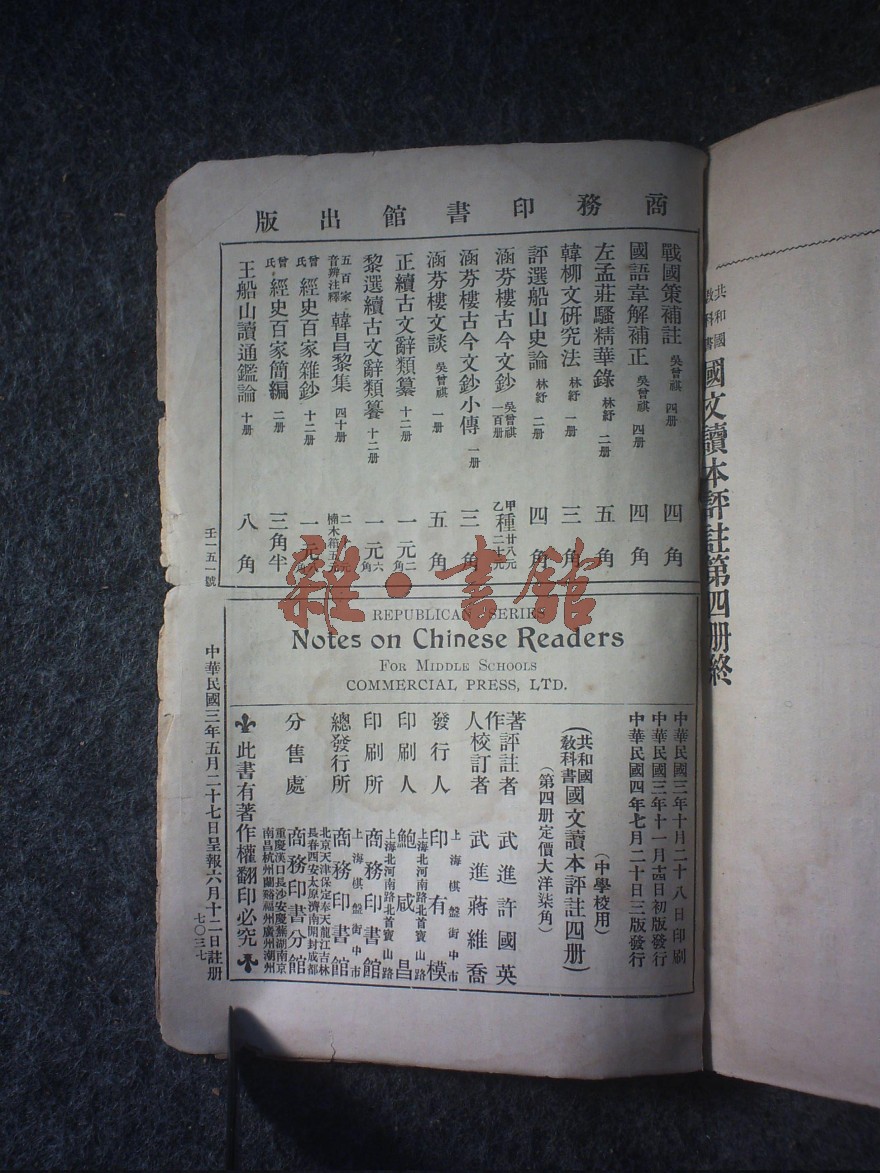 共和國
教科書
國文讀本評註第四册終
商務印書館出版
戰國策補註 吳曾祺 四册 四角
國語韋解補正 吳曾祺 四册 四角
左孟莊騷精華錄 林紓 二册 五角
韓柳文研究法 林紓 一册 三角
評選船山史論 林紓 二册 四角
涵芬樓古今文鈔 吳曾祺 一百册 甲種廿八元 乙種二十元
涵芬樓古今文鈔小傳 一册 三角
涵芬樓文談 吳曾祺 一册 五角
正續古文辭類纂 十二册 一元二角
黎選續古文辭類纂 十二册 一元六角
五百家音辨注釋 韓昌黎集 四十册 二十元 楠木箱五元
曾氏 經史百家雜鈔 十二册 一元八角
曾氏 經史百家簡編 二册 三角半
王船山讀通鑑論 十册 八角
壬一五一號
雜·書館
REPUBLICAN SERIES
Notes on Chinese Readers
FOR MIDDLE SCHOOLS
COMMERCIAL PRESS, LTD.
中華民國三年十月二十八日印刷
中華民國三年十一月十四日初版發行
中華民國四年七月二十日三版發行
(中學校用)
(共和國教科書國文讀本評註四册)
(第四册定價大洋柒角)
著作人 評註者 武進許國英
校訂者 武進蔣維喬
發行人 上海棋盤街中市 印有模
印刷人 上海北河南路北首寶山路 鮑咸昌
印刷所 上海北河南路北首寶山路 商務印書館
總發行所 上海棋盤街中市 商務印書館
分售處 北京天津保定奉天龍江吉林
長春西安太原濟南開封成都
商務印書分館
重慶漢口長沙安慶蕪湖南京
南昌杭州蘭谿福州廣州潮州
此書有著作權翻印必究
中華民國三年五月二十七日呈報六月十二日註册
七〇三七